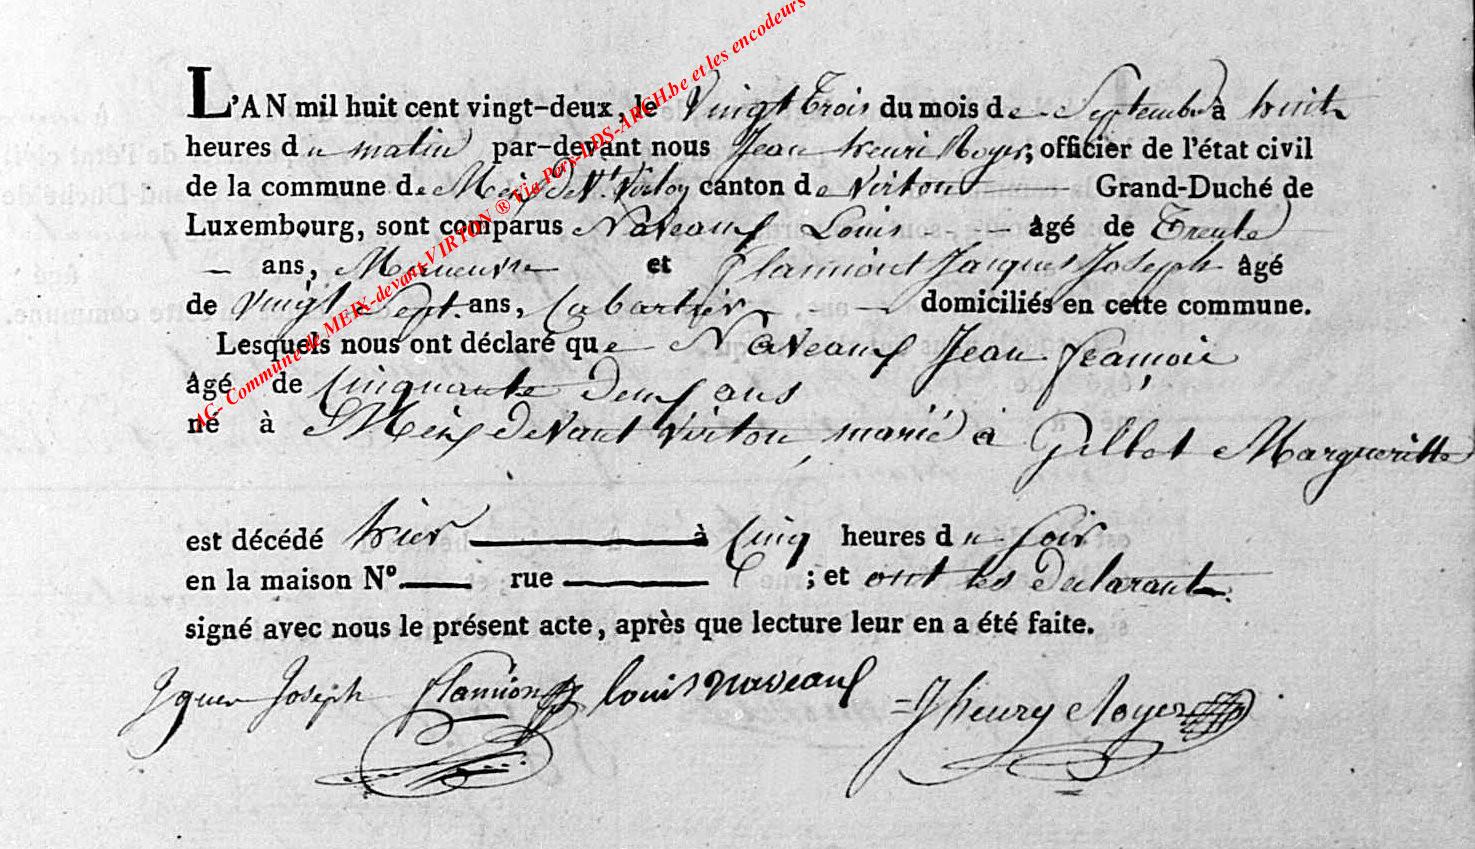 L'AN mil huit cent vingt-deux, le Vingt Trois du mois de Septembre à huit
heures du matin par-devant nous Jean henri Noyer, officier de l'état civil
de la commune de Meix devt Virton canton de Virton Grand-Duché de
Luxembourg, sont comparus Naveaux Louis âgé de Trente
ans, Maneuvre et Flamion Jacques Joseph âgé
de Vingt Sept ans, Cabartier domiciliés en cette commune.
Lesquels nous ont déclaré que Naveaux Jean francois
âgé de Cinquante deux ans
né à Meix devant Virton, marié à Gillet Margueritte
est décédé hier à Cinq heures du soir
en la maison N° rue ; et ont les declarant
signé avec nous le présent acte, après que lecture leur en a été faite.
Joseph flamion louis naveaux = Jhenry Noyer
AC- Commune de MEIX-devant-VIRTON ® Via Pers-ADS-ARCH.be et les encodeurs